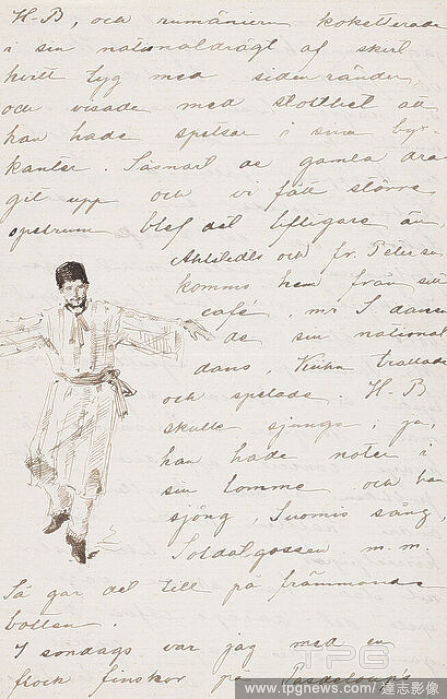 H-B, och rumänien koketterade
i sin nationaldrägt af skirt
hvitt tyg med siden ränder,
och visade med stolthet att
han hade spetsar i sina byx
kanter. Såsnart de gamla dra
git upp och vi fått större
utrum blef det lifligare än,
Ahlstedts och fr. Petersen
kommo hem från sitt
café, mr S dansa
de sin national
dans, Kuhn trallade
och spelade. H-B
skulle sjunga, ja,
han hade noter i
sin lomme och han
sjöng, Suomis sång,
Soldatgossen m.m.
Så går det till på främmande
botten.
I söndags var jag med en
flock finskor på
TPG
www.tpgnews.com/達志影像